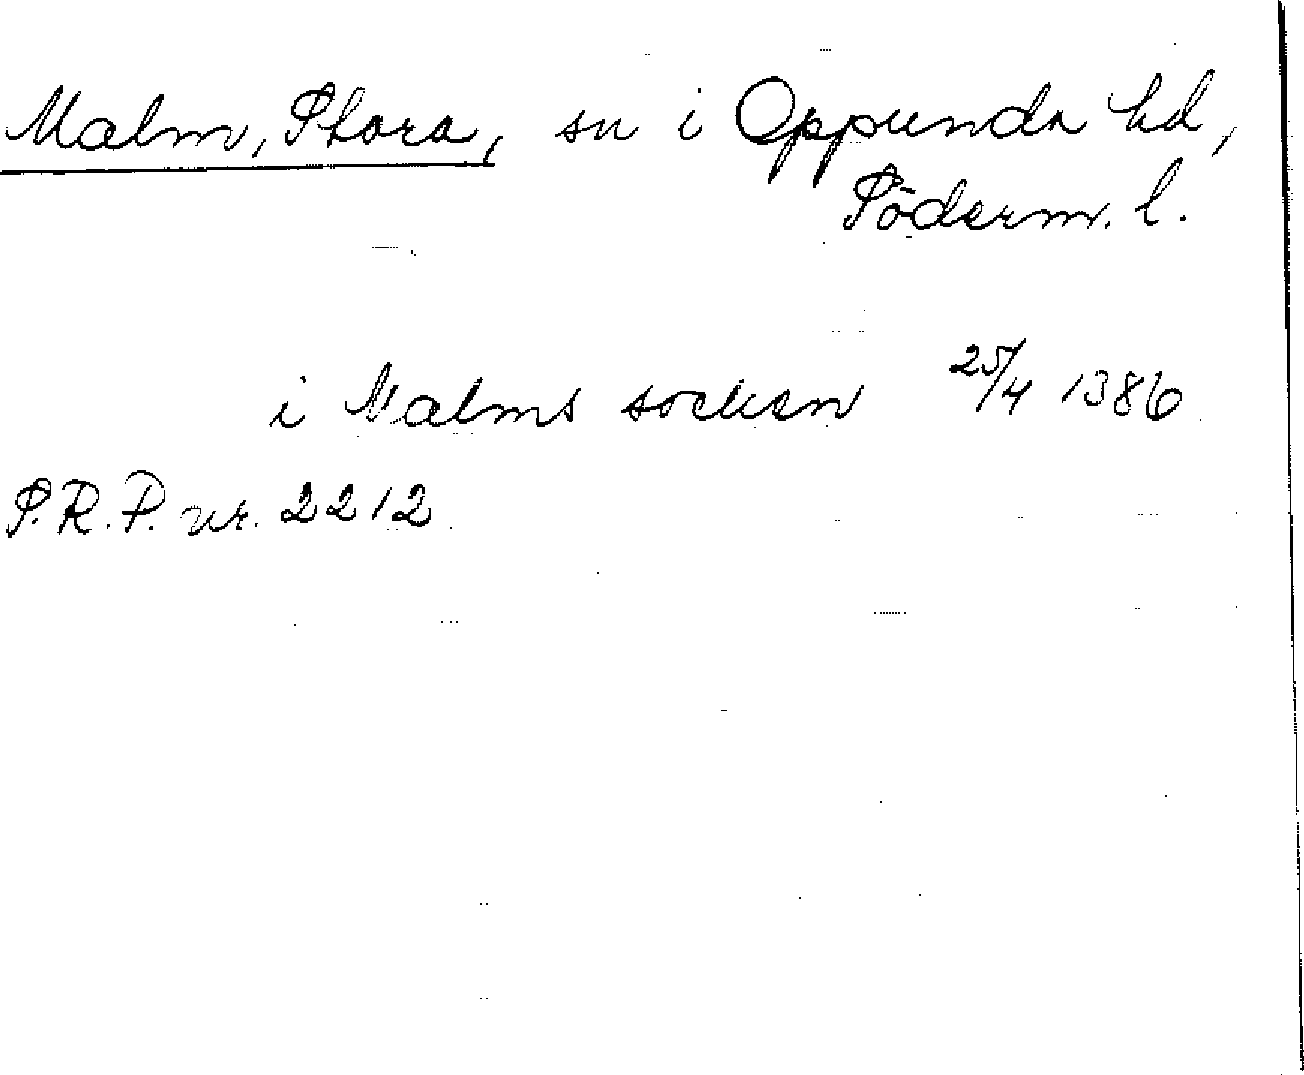 Malm, Stora, sn i Oppunda hd,
Söderm. l.
i Malms socken 25/4 1386
S.R.P. nr. 2212